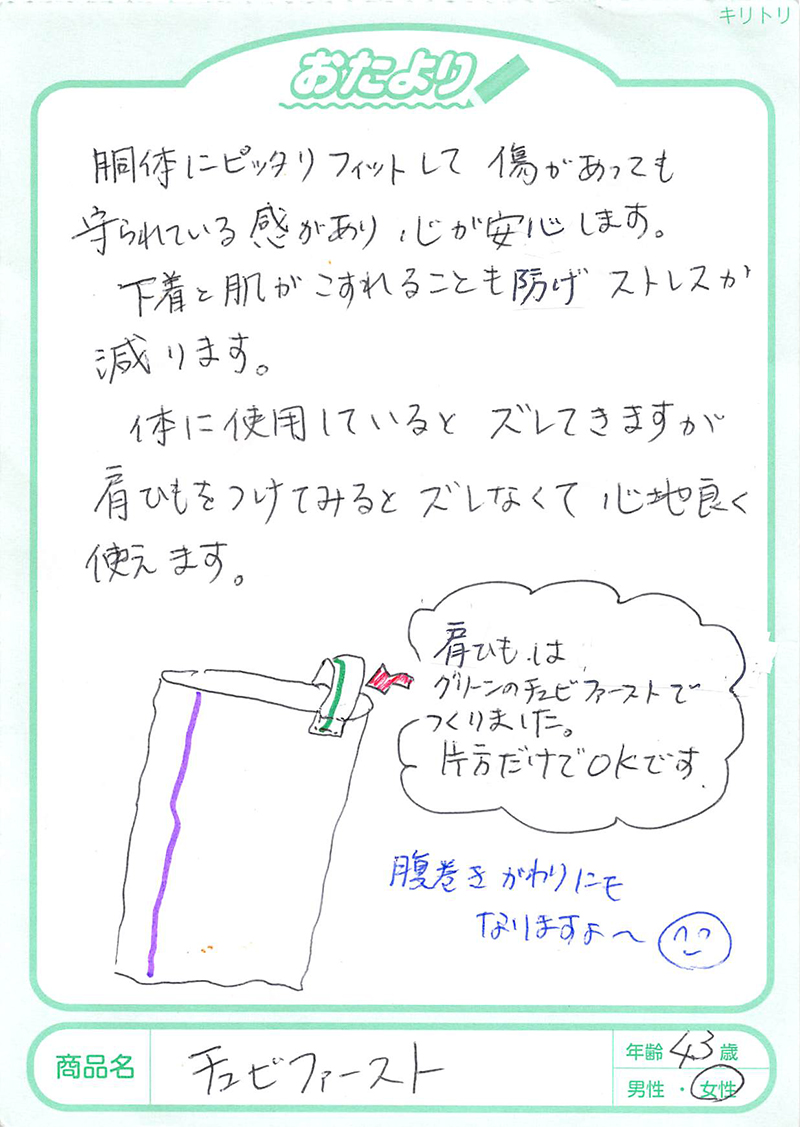 キリトリ
おたより
胴体にピッタリフィットして 傷があっても
守られている感があり 心が安心します。
下着と肌がこすれることも防げ ストレスが
減ります。
体に使用していると ズレてきますが
肩ひもをつけてみると ズレなくて 心地良く
使えます。
肩ひもは
グリーンのチュビファーストで
つくりました。
片方だけでOKです.
腹巻きがわりにも
なりますよ〜
商品名
チュビファースト
年齢 43 歳
男性 ・ 女性